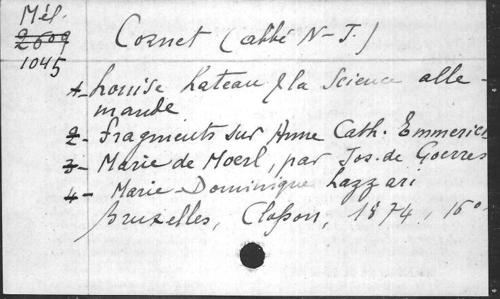 Mél.
2609
1045
Cornet (abbé N-J.)
1- Louise Lateau & la Science alle-
mande
2- Fragments sur Anne Cath. Emmerich
3- Marie de Moerl, par Jos. de Goerres
4- Marie-Dominique Lazzari
Bruxelles, Closson, 1874, 16°